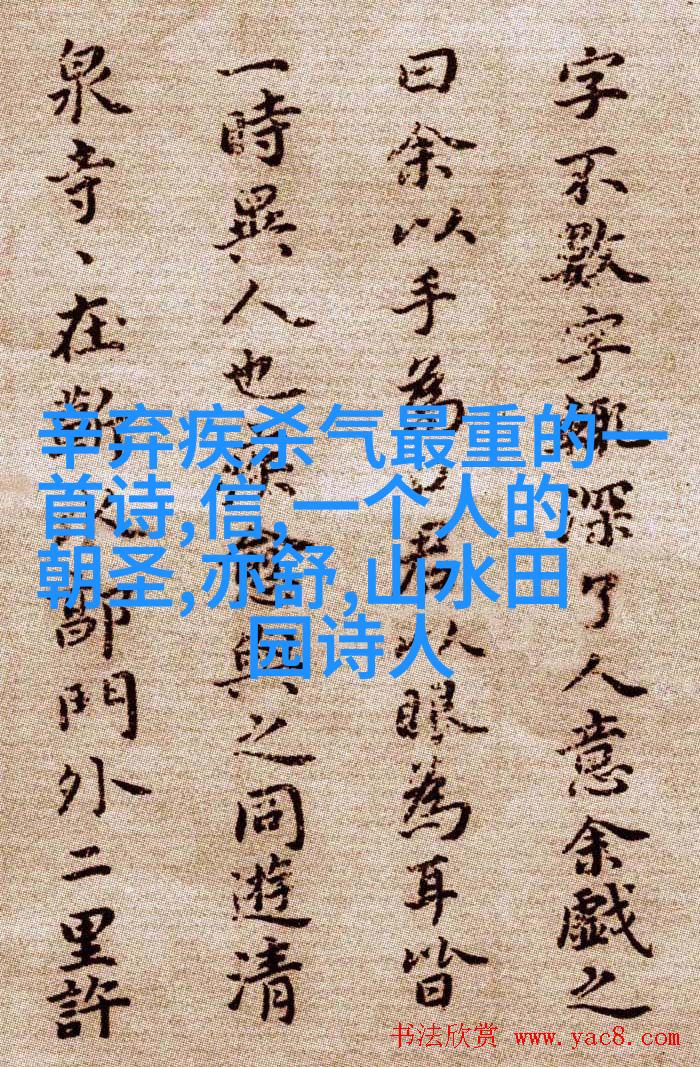 字不數字輒深了人意余戲之
曰余以手為口君以眼為耳皆
一時異人也疾愈與之同遊清
泉寺、在蘄郭門外二里許
辛弃疾杀气最重的一
首诗,信,一个人的
朝圣,亦舒,山水田
园诗人
书法欣赏 www.yac8.com